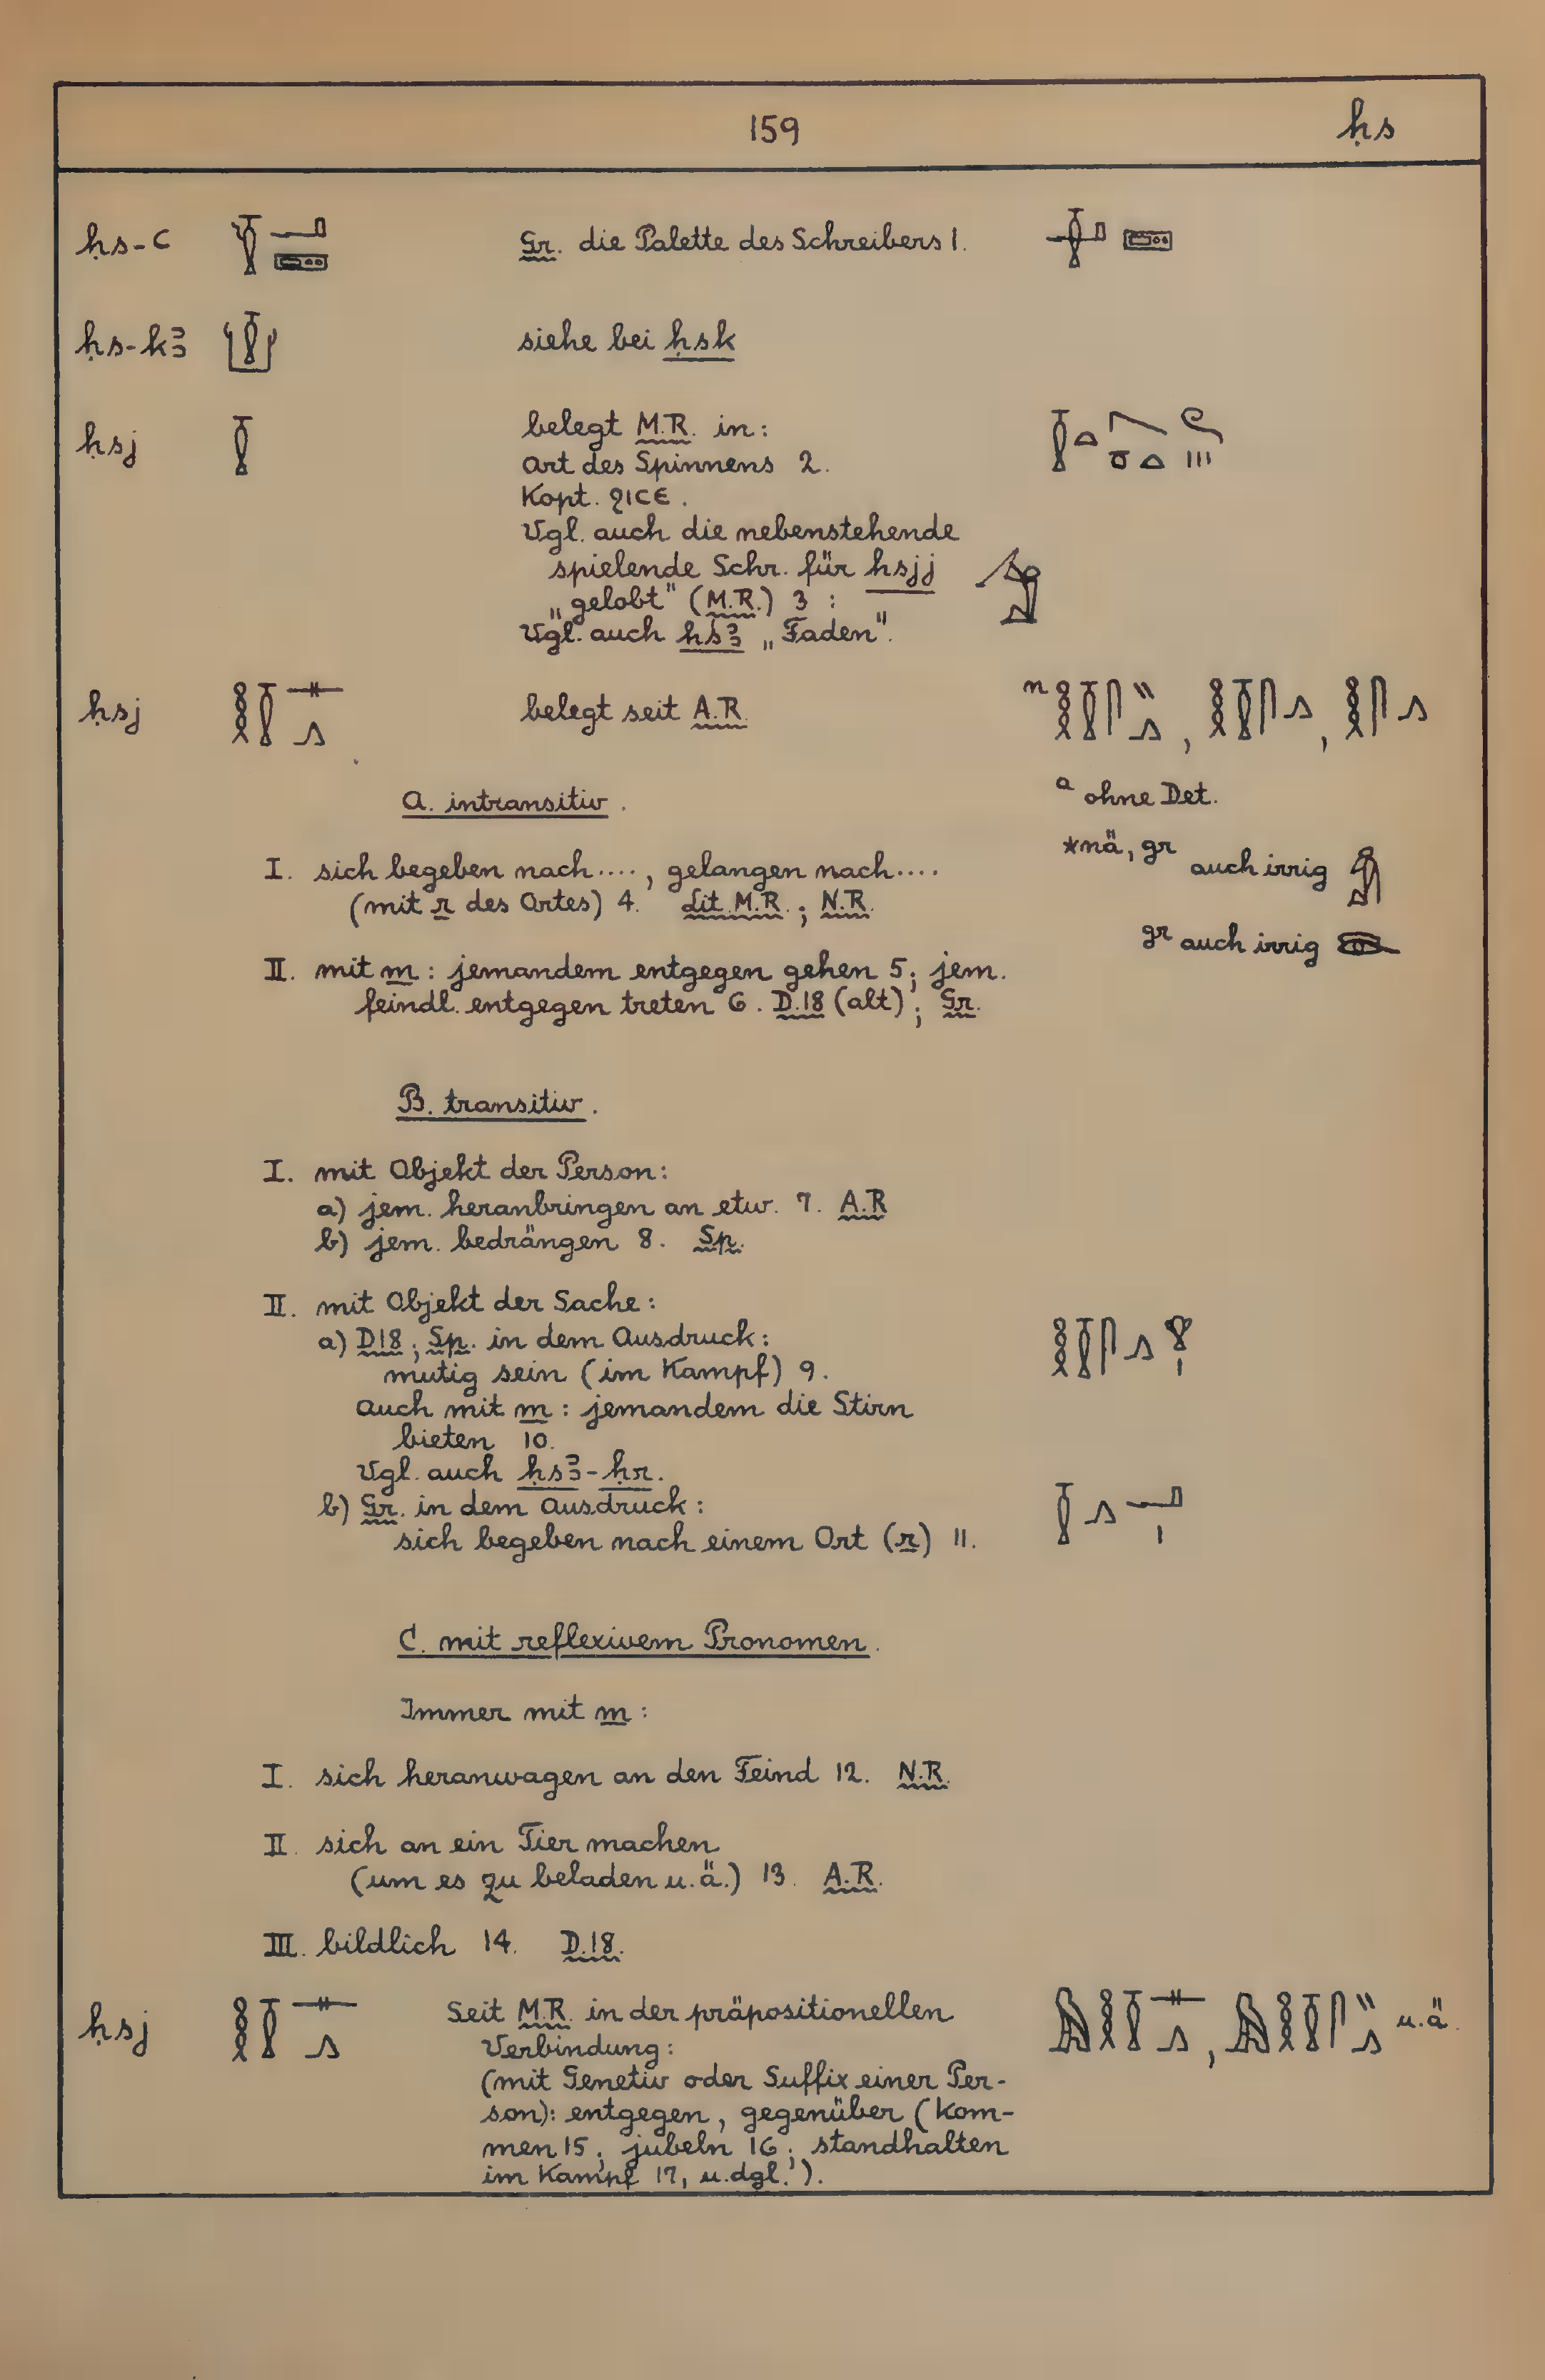 159 ḥs
ḥs-ꜥ Gr. die Palette des Schreibers 1.
ḥs-kꜣ siehe bei ḥsk
ḥsj belegt M.R. in:
Art des Spinnens 2.
Kopt. ϩⲓⲥⲉ.
Vgl. auch die nebenstehende
spielende Schr. für ḥsjj
„gelobt" (M.R.) 3 :
Vgl. auch ḥsꜣ „Faden".
ḥsj belegt seit A.R.
a ohne Det.
A. intransitiv.
*nä, gr auch irrig
I. sich begeben nach...., gelangen nach....
(mit r des Ortes) 4. Lit. M.R.; N.R.
gr auch irrig
II. mit m: jemandem entgegen gehen 5; jem.
feindl. entgegen treten 6. D.18 (alt); Gr.
B. transitiv.
I. mit Objekt der Person:
a) jem. heranbringen an etw. 7. A.R
b) jem. bedrängen 8. Sp.
II. mit Objekt der Sache:
a) D18; Sp. in dem Ausdruck:
mutig sein (im Kampf) 9.
Auch mit m: jemandem die Stirn
bieten 10.
Vgl. auch ḥsꜣ-ḥr.
b) Gr. in dem Ausdruck:
sich begeben nach einem Ort (r) 11.
C. mit reflexivem Pronomen.
Immer mit m:
I. sich heranwagen an den Feind 12. N.R.
II. sich an ein Tier machen
(um es zu beladen u.ä.) 13. A.R.
III. bildlich 14. D.18.
ḥsj Seit M.R. in der präpositionellen u.ä.
Verbindung:
(mit Genetiv oder Suffix einer Per-
son): entgegen, gegenüber (kom-
men 15; jubeln 16; standhalten
im Kampf 17, u.dgl.).